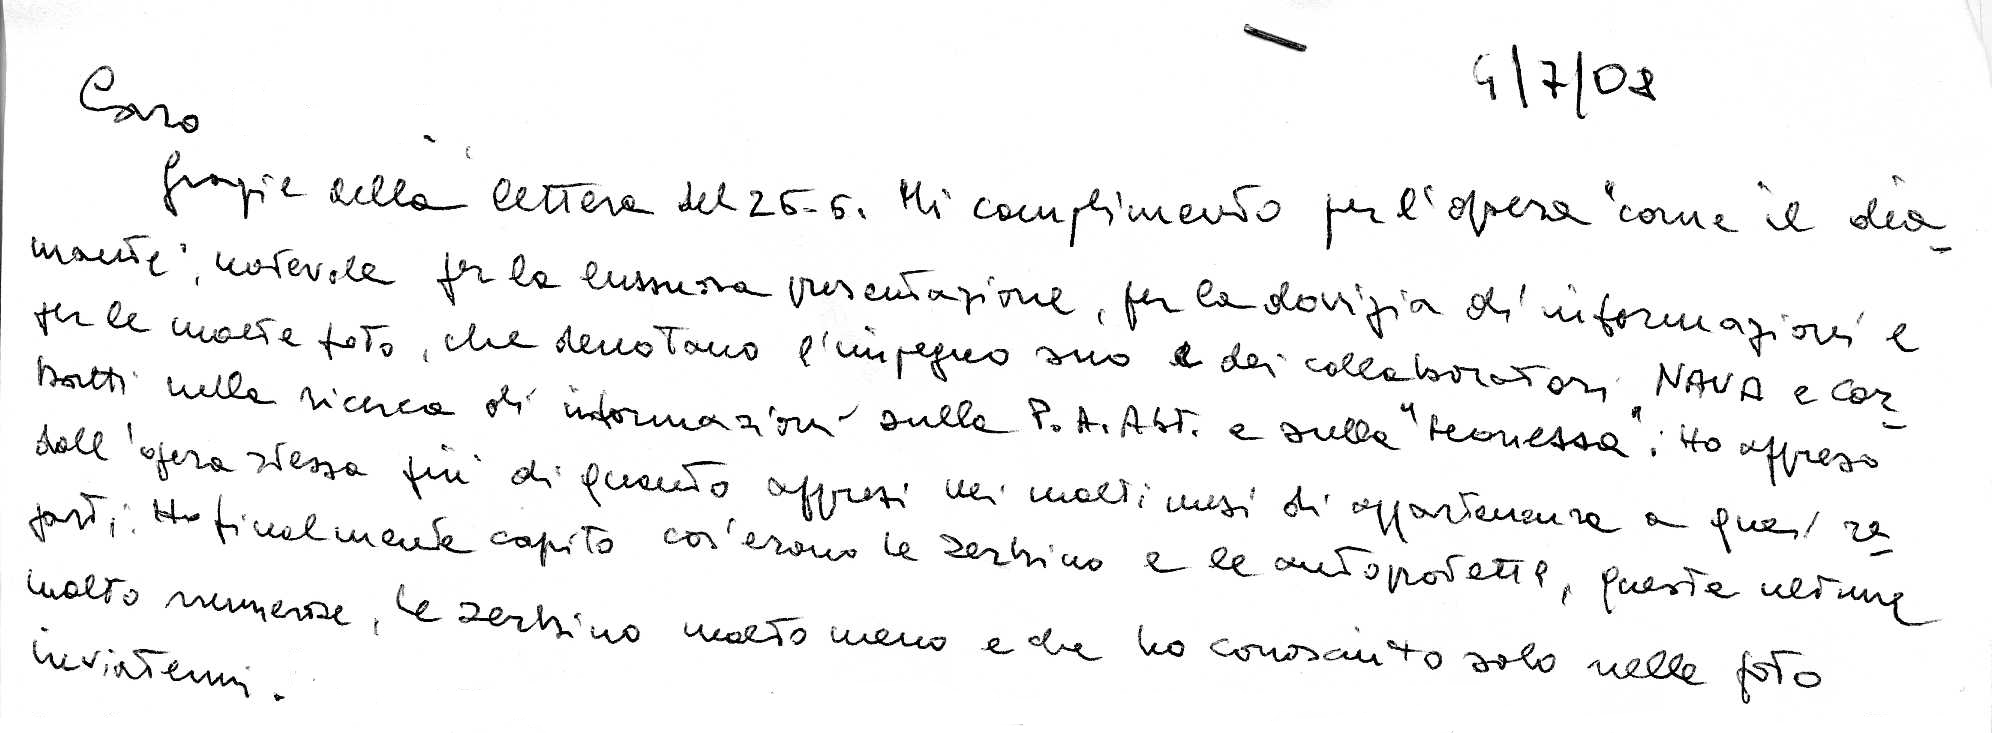 4/7/08
Caro
Grazie della lettera del 25-6. Mi complimento per l'opera "come il dia-
mante", notevole per la lussuosa presentazione, per la dovizia di informazioni e
per le molte foto, che denotano l'impegno suo e dei collaboratori NAVA e Cor-
batti nella ricerca di informazioni sulla P.A.Abt. e sulla "Leonessa". Ho appreso
dall'opera stessa più di quanto appresi nei molti mesi di appartenenza a quei re-
parti. Ho finalmente capito cos'erano le zerbino e le autoprotette, queste ultime
molto numerose, le zerbino molto meno e che ho conosciuto solo nelle foto
inviatemi.